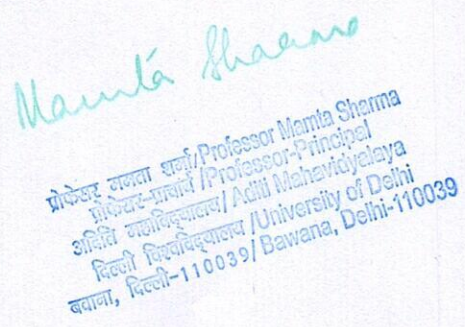 Mamta Sharma
प्रोफेसर ममता शर्मा/Professor Mamta Sharma
प्रोफेसर-प्राचार्य /Professor-Principal
अदिति महाविद्यालय/ Aditi Mahavidiyalaya
दिल्ली विश्वविद्यालय /University of Delhi
बवाना, दिल्ली-110039/ Bawana, Delhi-110039